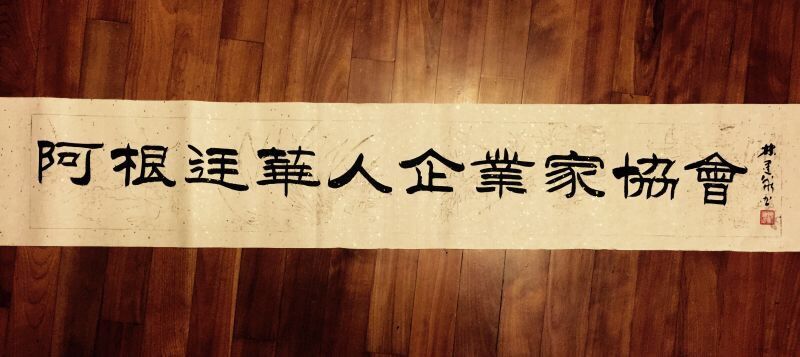 阿根廷華人企業家協會